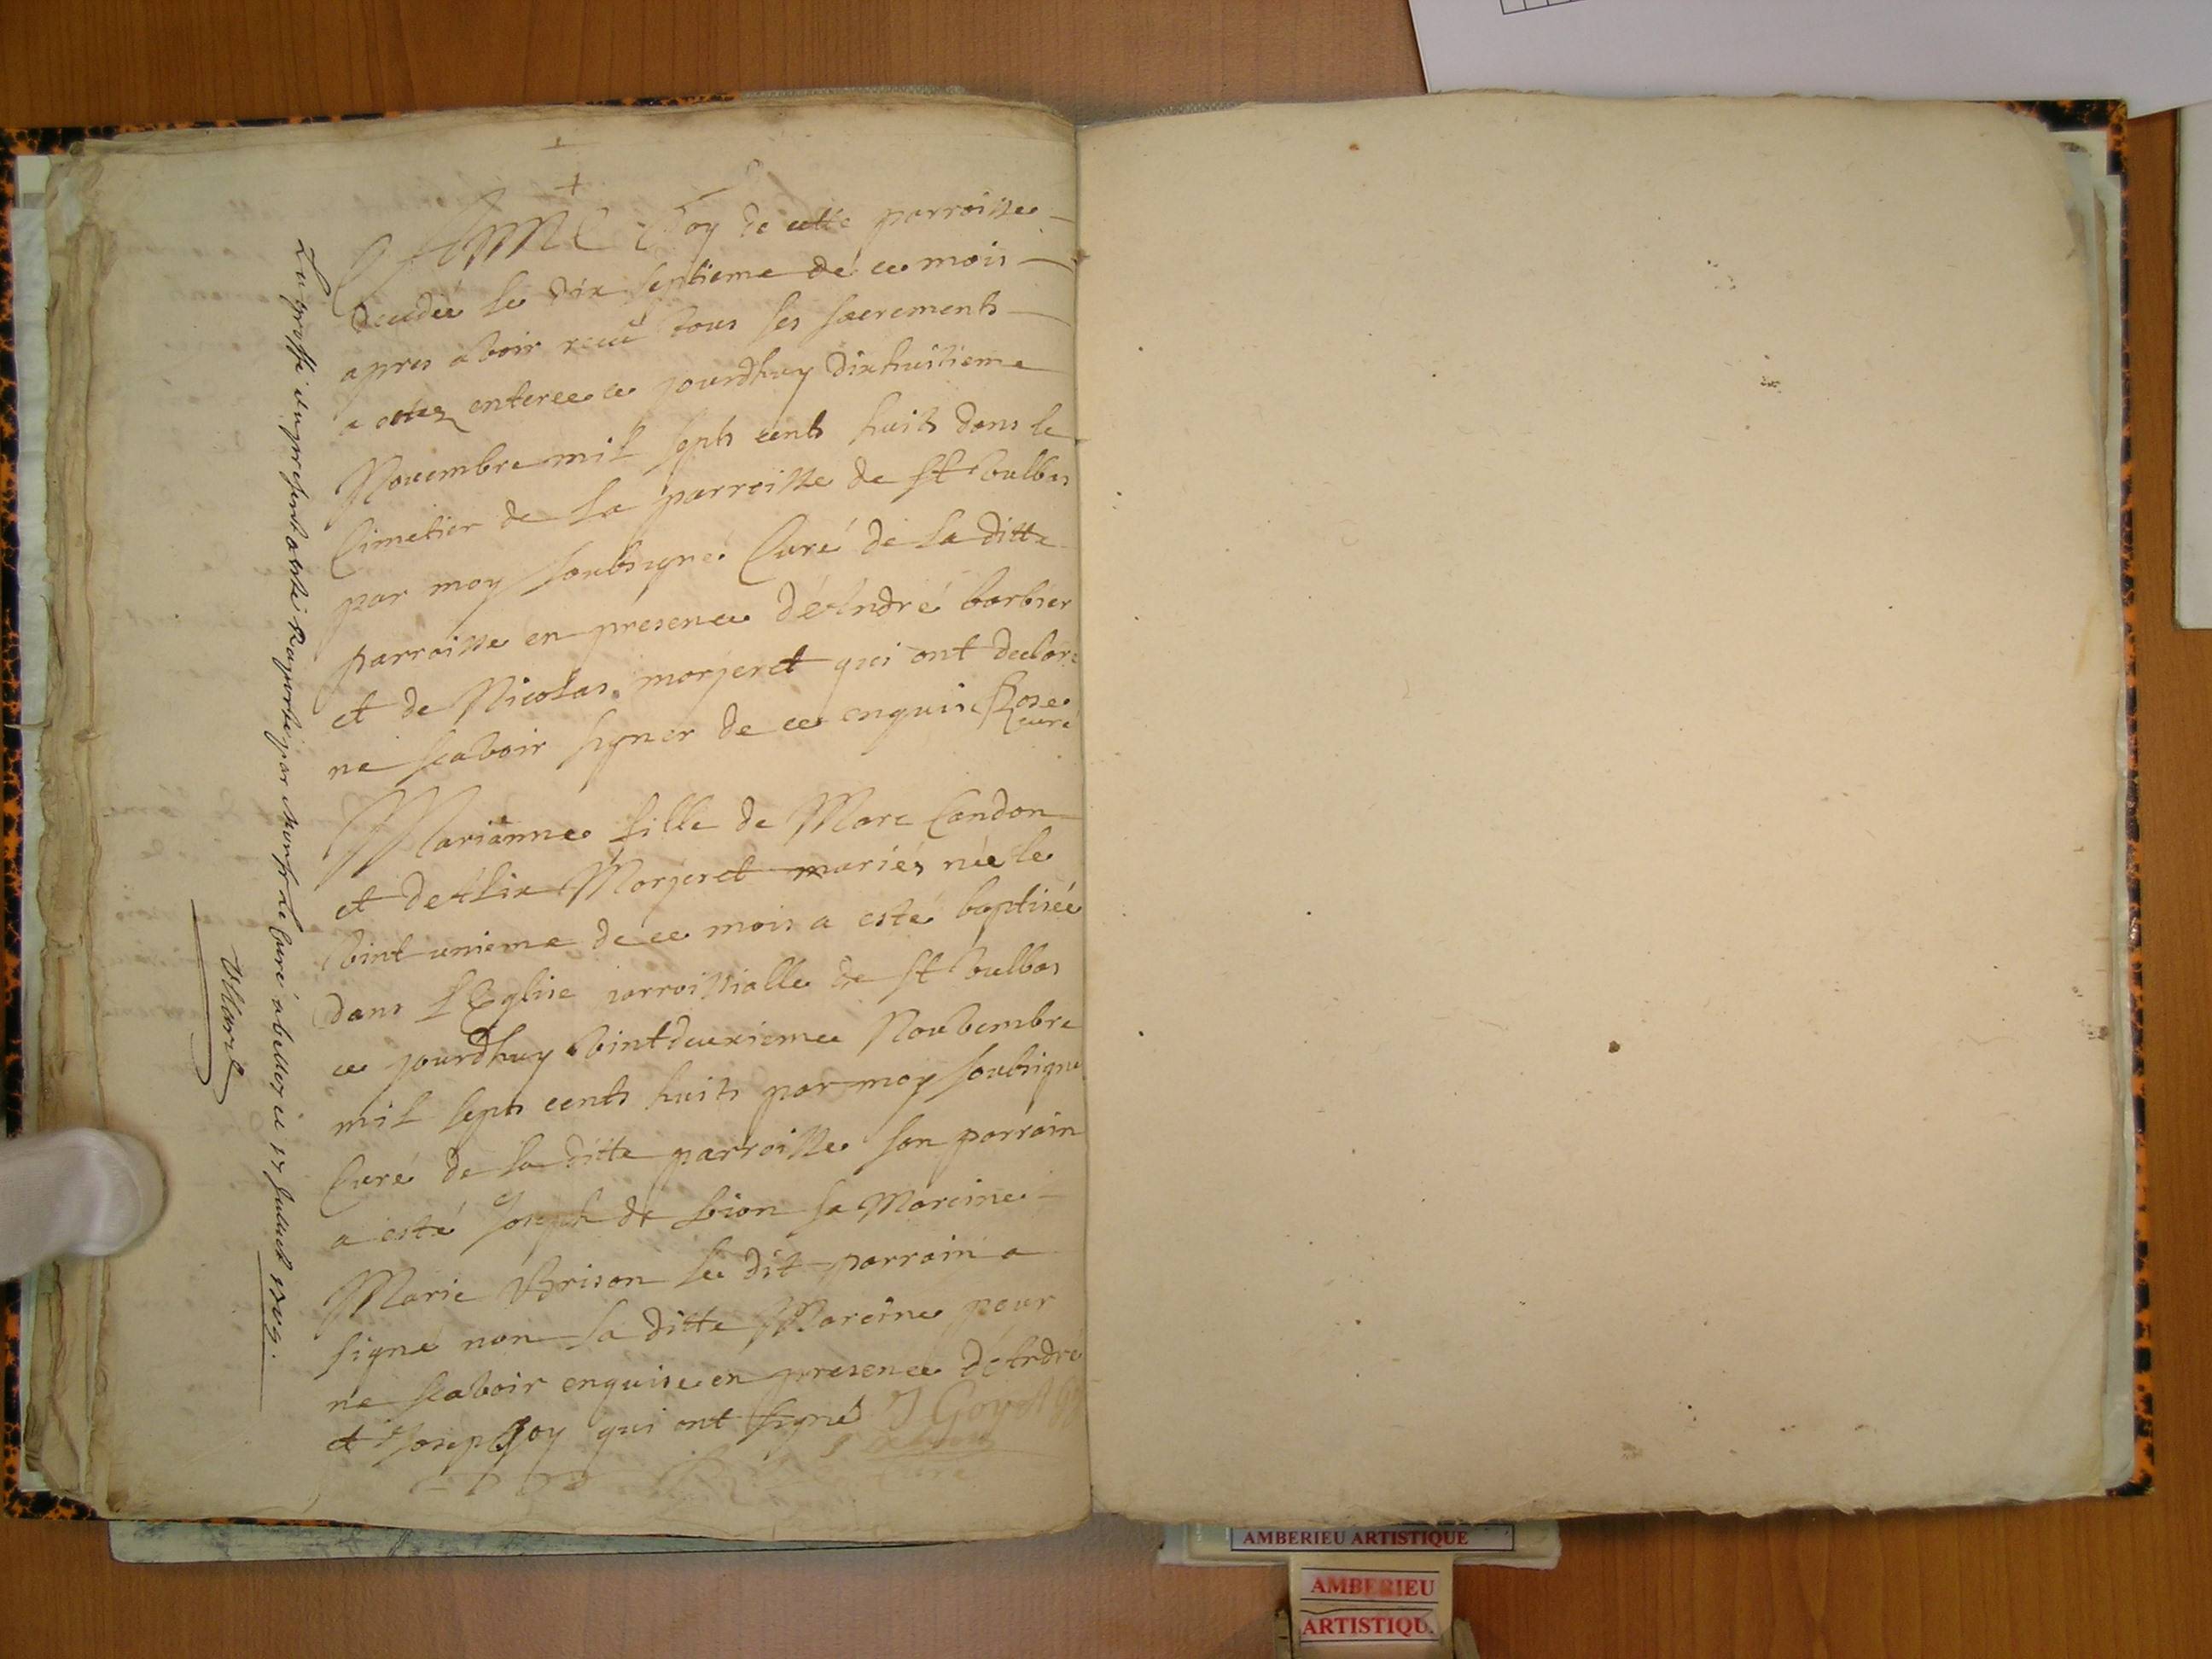 AME Goy de cette parroisse
decedée le dix septieme de ce mois
apres avoir receu tous ses sacrements
a estez enteree ce jourdhuy dixhuitieme
Novembre mil septs cents huits dans le
Cimetier de la parroisse de St Vulbas
par moy soubsigné Curé de la ditte
parroisse en presence dé André barbier
et de Nicolas morjeret qui ont declaré
ne scavoir signer de ce enquis Rose
curé
Marianne fille de Marc Candon
et de Alix Morjeret mariés née le
vint unieme de ce mois a esté baptisée
dans L'Eglise parroissialle de St Vulbas
ce jourdhuy vintdeuxieme Novembre
mil septs cents huits par moy soubsigné
Curé de la ditte parroisse son parrain
a esté Joseph de Lion sa Mareine
Marie Brison le dit parrain a
signé non la ditte Mareine pour
ne scavoir enquise en presence dé André
et Joseph goy qui ont signé J Goy A
Curé
La grosse du present a esté Raportée par Monsr le Curé a belley ce 17 Juillet 1709.
AMBERIEU ARTISTIQUE
AMBERIEU
ARTISTIQU